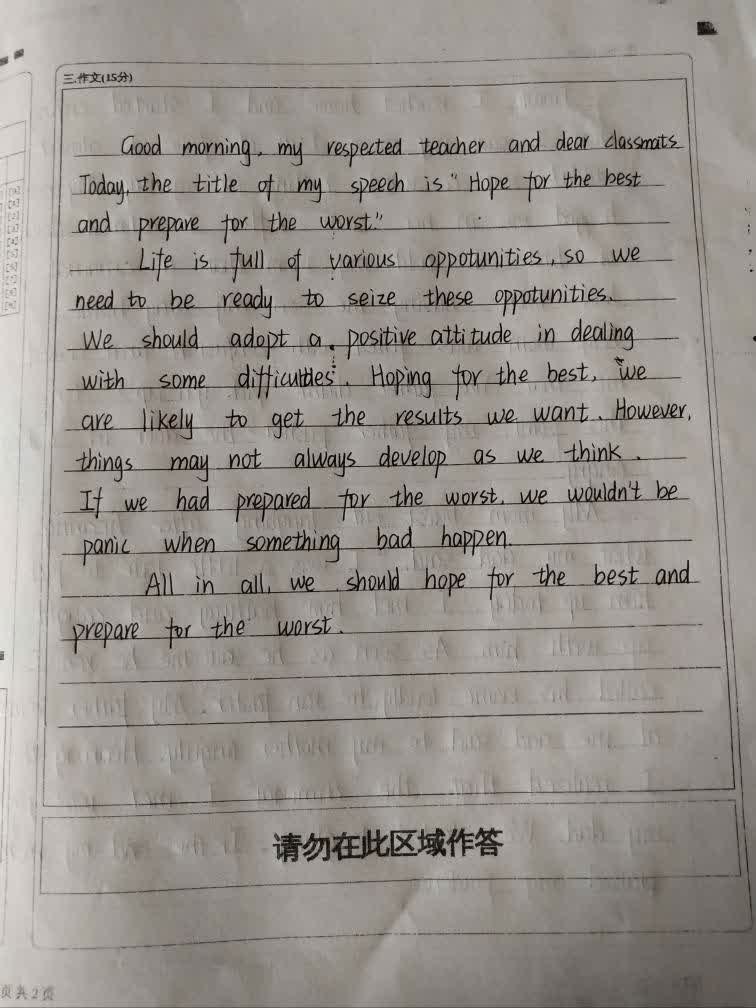 三.作文(15分)
Good morning, my respected teacher and dear classmats
Today, the title of my speech is "Hope for the best
and prepare for the worst."
Life is full of various oppotunities, so we
need to be ready to seize these oppotunities.
We should adopt a positive attitude in dealing
with some difficulties. Hoping for the best, we
are likely to get the results we want. However,
things may not always develop as we think.
If we had prepared for the worst, we wouldn't be
panic when something bad happen.
All in all, we should hope for the best and
prepare for the worst.
请勿在此区域作答
页共2页